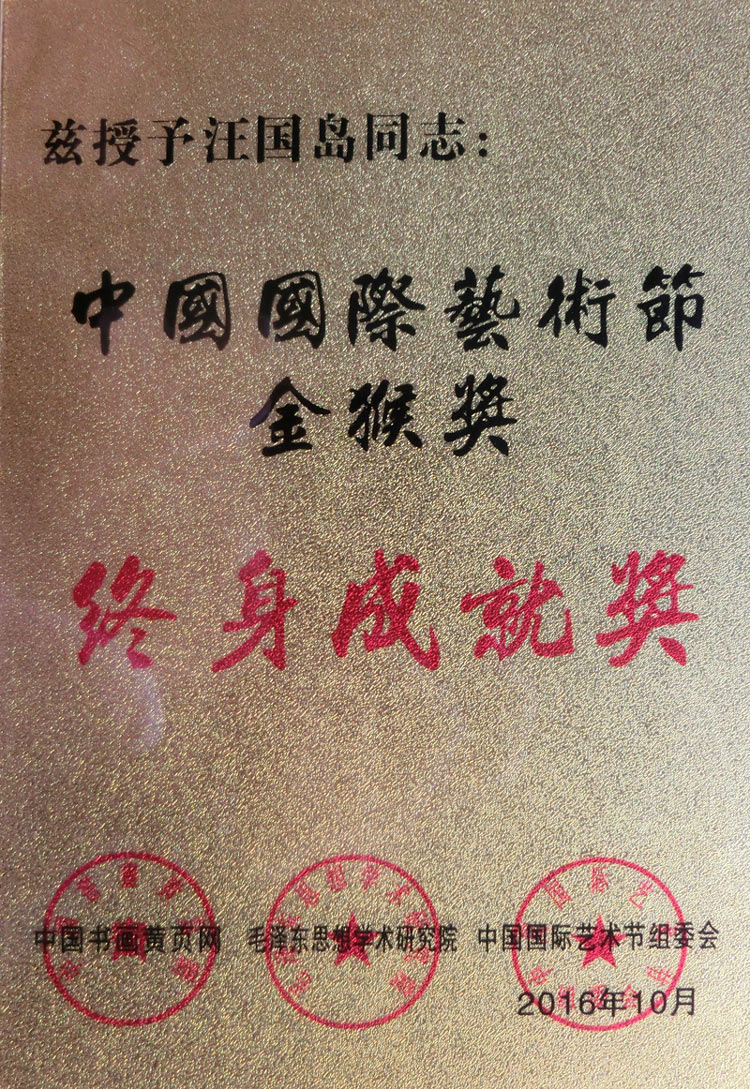 兹授予汪国岛同志：
中國國際藝術節
金猴獎
终身成就獎
中国书画黄页网 毛泽东思想学术研究院 中国国际艺术节组委会
2016年10月